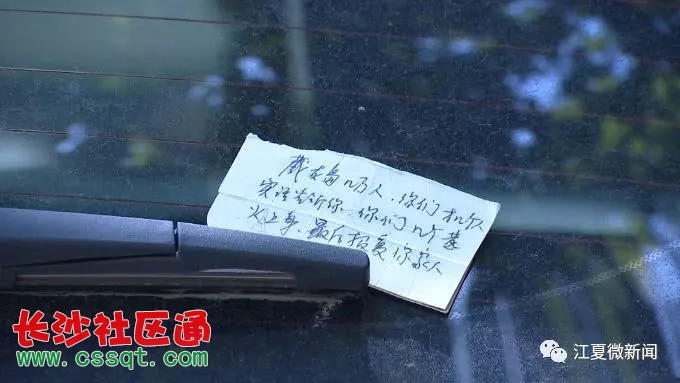 岛几万人、你们
实话告诉你 你们几个惹
火上身、最后报复你家人
长沙社区通
www.cssqt.com
江夏微新闻